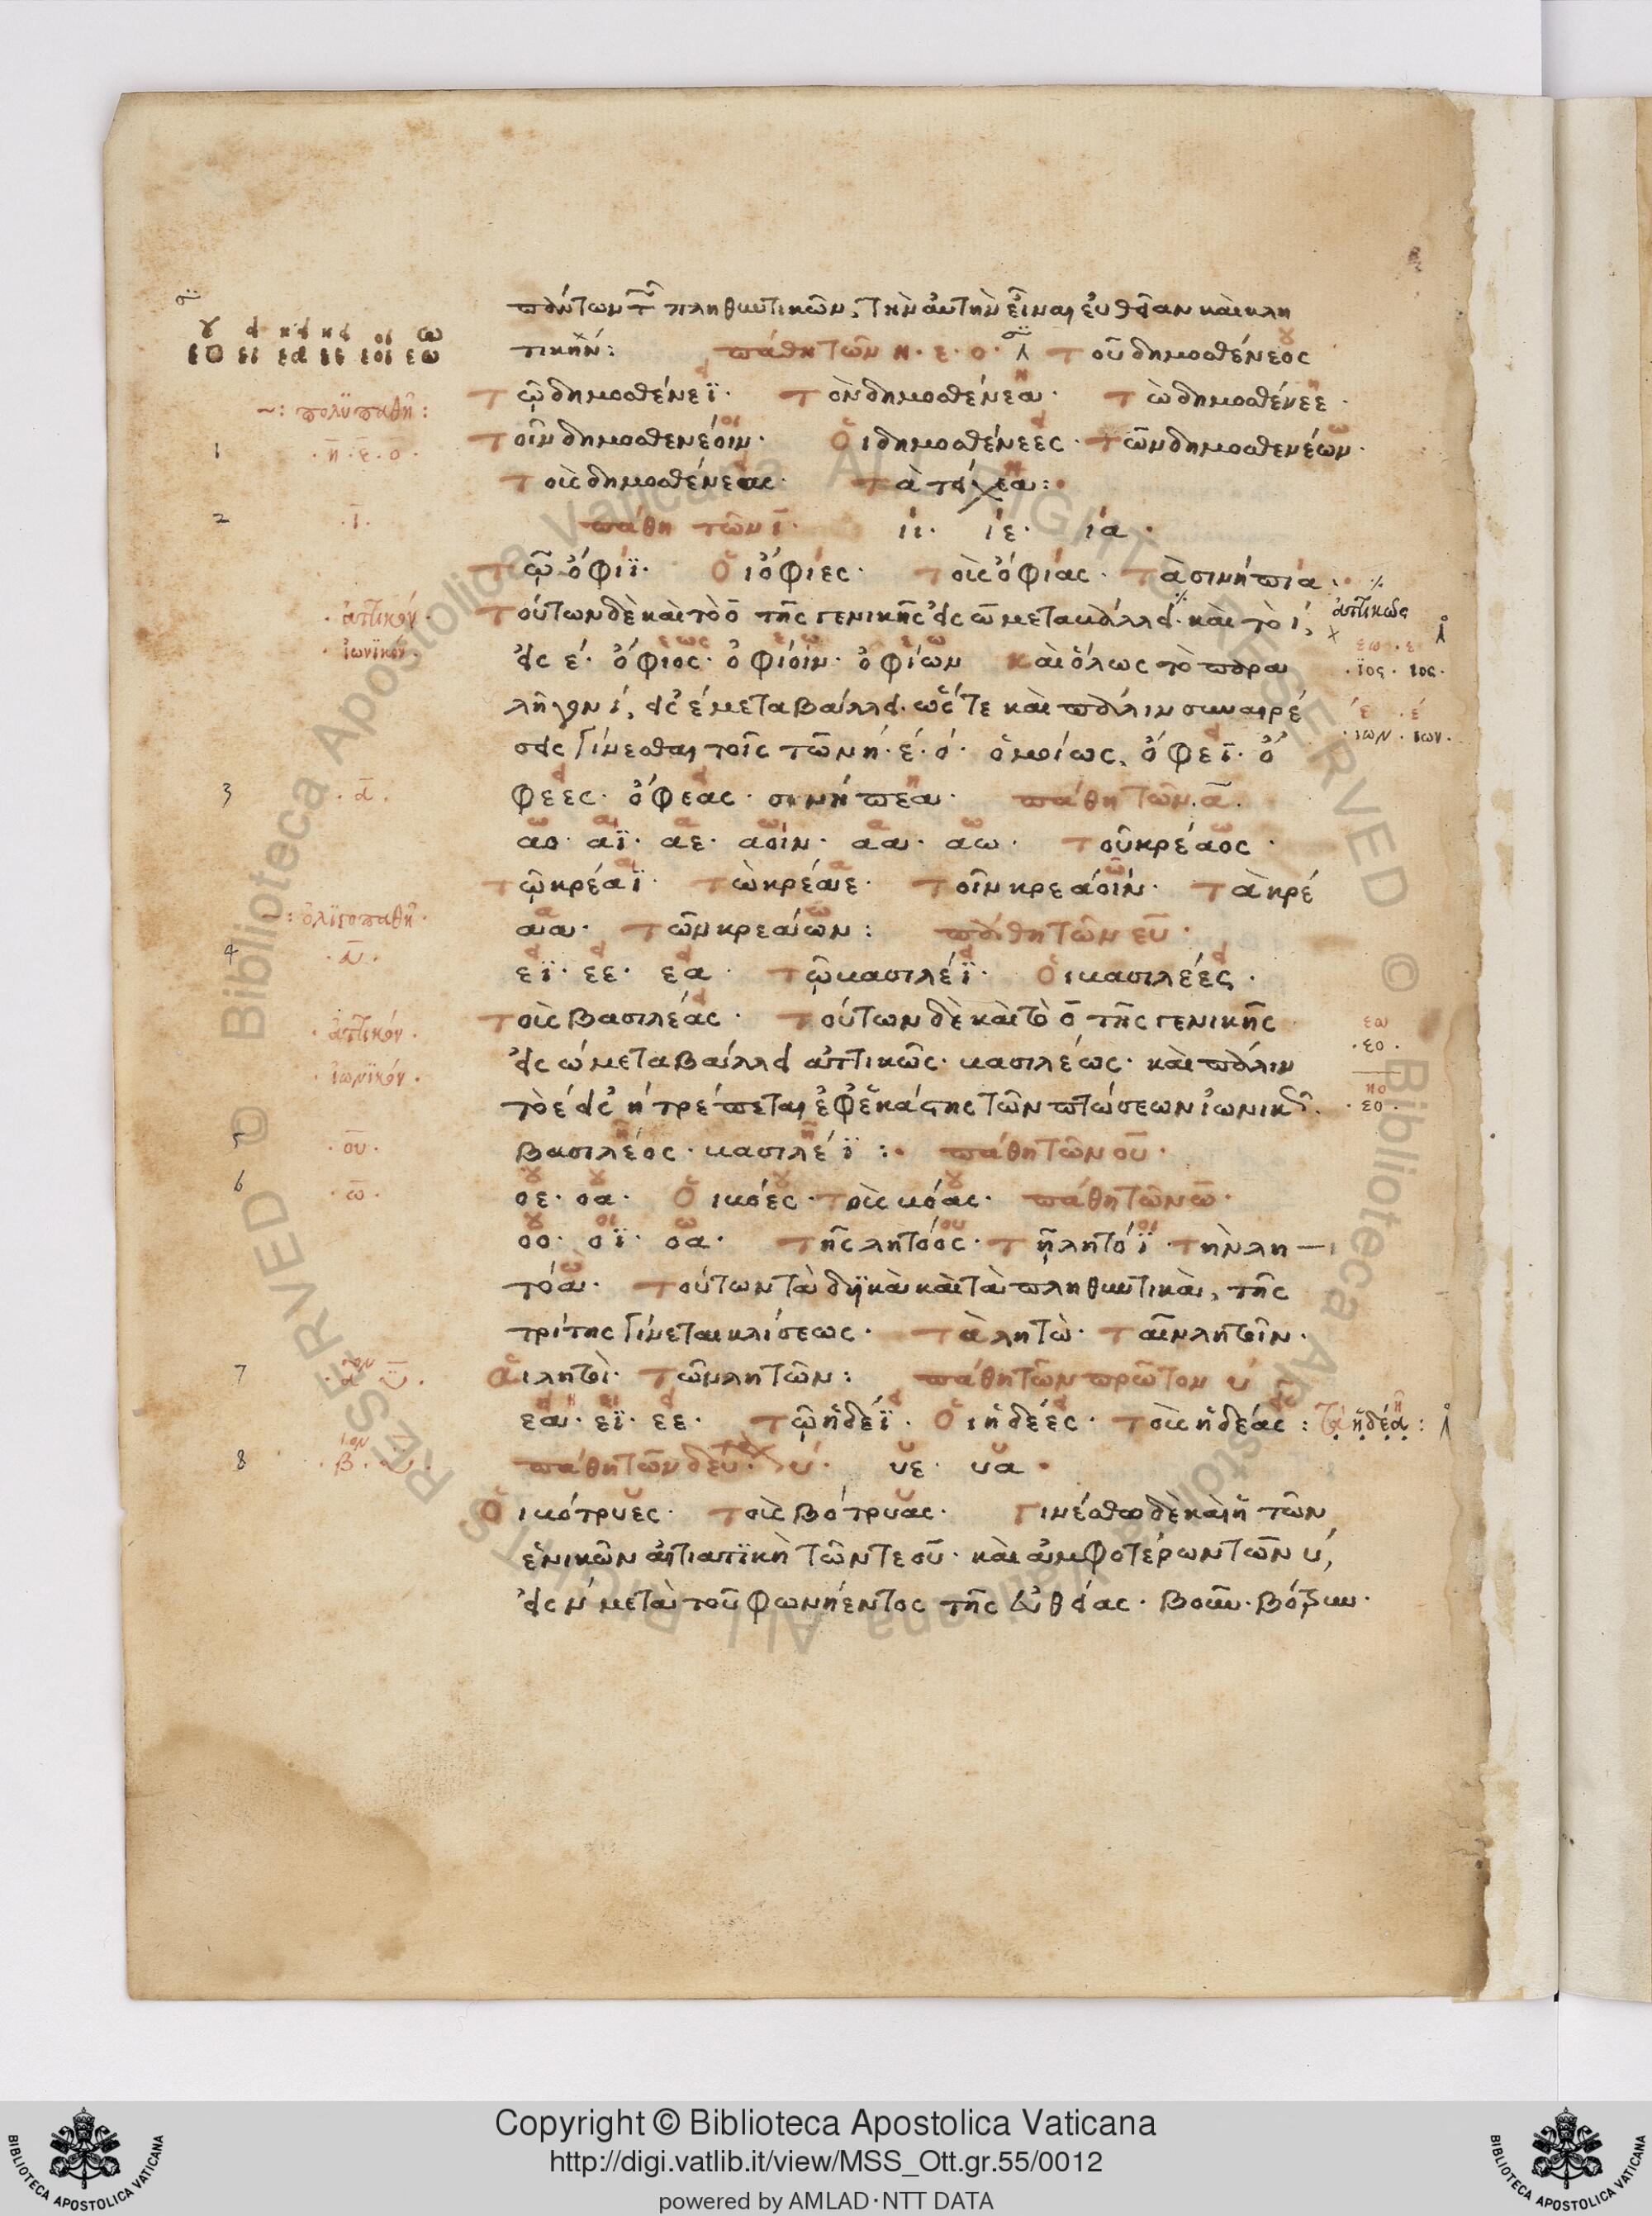 πάντων τῶν πληθυντικῶν, τὴν αὐτὴν εἶναι εὐθεῖαν καὶ κλη
τικήν: πάθη τῶν η· ε· ο· τοῦ δημοσθένεος
τῷ δημοσθένεϊ· τὸν δημοσθένεα· τὼ δημοσθένεε·
τοῖν δημοσθενέοιν· οἱ δημοσθένεες· τῶν δημοσθενέων·
τοὺς δημοσθένεας· τὰ τείχεα:
πάθη τῶν ῑ· ιϊ· ιε· ια·
τῷ ὄφιϊ· οἱ ὄφιες· τοὺς ὄφιας· τὰ σινήπια·
τούτων δὲ καὶ τὸ ο̄ τῆς γενικῆς εἰς ω̄ μεταβάλλει· καὶ τὸ ί,
εἰς έ· ὄφιος· ὀφίοιν· ὀφίων καὶ ὅλως τὸ παρα
λῆγον ί, εἰς ἐ μεταβάλλει· ὥστε καὶ πάλιν συναιρέ
σεις γίνεσθαι τοῖς τῶν ή· έ· ό· ὁμοίως, ὄφεϊ· ὄ
φεες· ὄφεας· σινήπεα· πάθη τῶν ᾱ·
αο· αϊ· αε· αοιν· αα· αω· τοῦ κρέαος·
τῷ κρέαϊ· τὼ κρέαε· τοῖν κρεάοιν· τὰ κρέ
αα· τῶν κρεάων: πάθη τῶν ευ·
εϊ· εε· εα· τῷ βασιλέϊ· οἱ βασιλέες·
τοὺς βασιλέας· τούτων δὲ καὶ τὸ ο̄ τῆς γενικῆς
εἰς ώ μεταβάλλει ἀττικῶς· βασιλέως· καὶ πάλιν
τὸ έ εἰς ή τρέπεται ἐφ' ἑκάστης τῶν πτώσεων ἰωνικῶς.
βασιλέος· βασιλέϊ: πάθη τῶν ου·
οε· οα· οἱ βόες· τοὺς βόας· πάθη τῶν ω̄·
οο· οϊ· οα· τῆς λητόος· τῇ λητόϊ· τὴν λη
τόα· τούτων τὰ δυϊκὰ καὶ τὰ πληθυντικὰ, τῆς
τρίτης γίνεται κλίσεως· τὰ λητὼ· ταῖν λητοῖν·
αἱ λητοὶ· τῶν λητῶν: πάθη τῶν πρῶτον υ
εα· εϊ· εε· τῷ ἡδέϊ· οἱ ἡδέες· τοὺς ἡδέας: τὰ ἡδέα:
πάθη τῶν δευ· υ· υε· υα·
οἱ βότρυες· τοὺς βότρυας· γινέσθω δὲ καὶ ἡ τῶν
ἑνικῶν αἰτιατικὴ τῶν τε ου· καὶ ἀμφοτέρων τῶν υ,
εἰς ν μετὰ τοῦ φωνήεντος τῆς εὐθείας· βοῦν· βότρυν·
πολυπαθῆ:
1
·η̄·ε̄·ο̄·
2
·ῑ·
·ἀττικόν·
·ἰωνικόν·
3
·ᾱ·
: ὀλιγοπαθῆ·
4
·ἀττικόν·
·ἰωνικόν·
5
·ου·
6
·ω̄·
7
8
ἀττικῶς
εω · ε
·ϊος · ιος·
·ιων · ιων·
εω
·εο·
ηο
·εο·
Copyright © Biblioteca Apostolica Vaticana
http://digi.vatlib.it/view/MSS_Ott.gr.55/0012
powered by AMLAD·NTT DATA
BIBLIOTECA APOSTOLICA VATICANA
BIBLIOTECA APOSTOLICA VATICANA